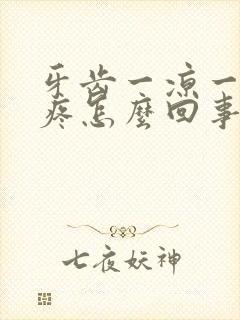 牙齿一凉一
疼怎麼回事
七夜妖神